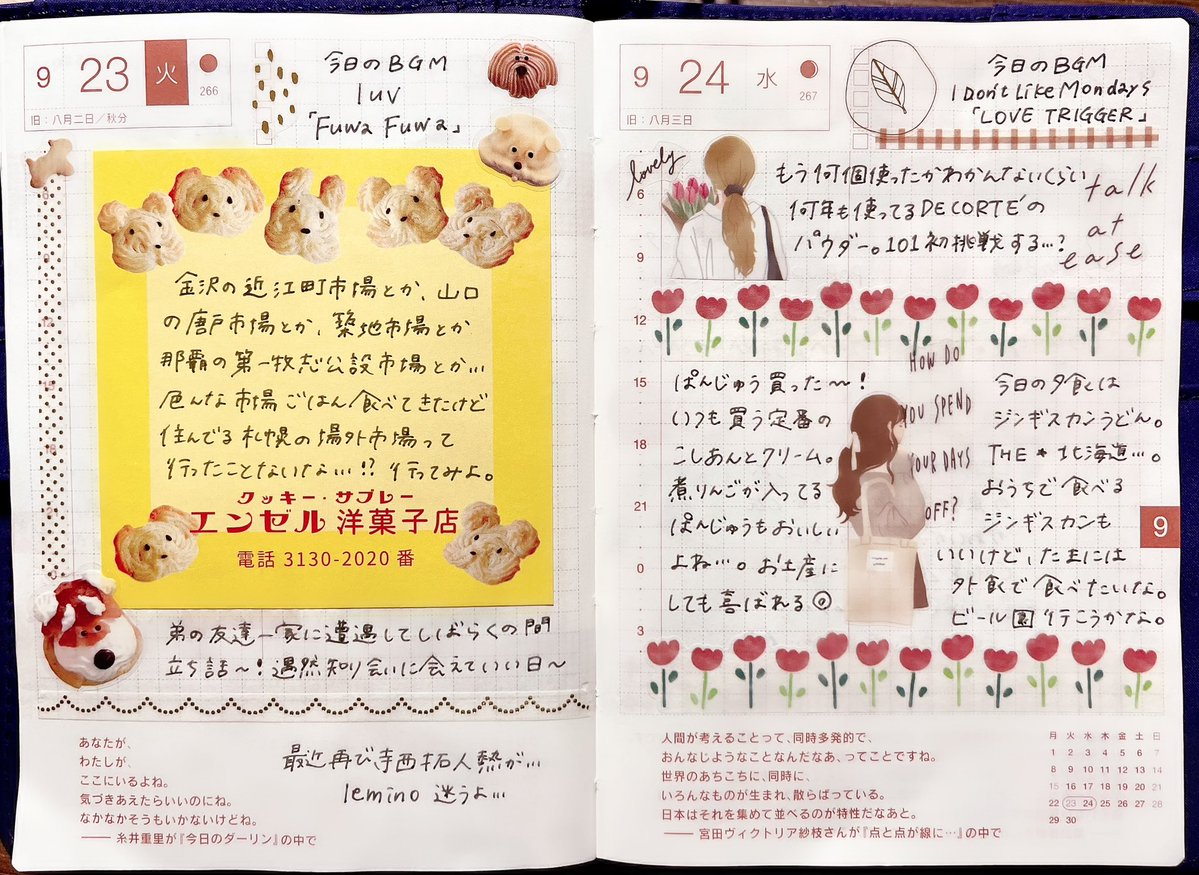 9 23 火
266
旧：八月二日／秋分
今日のBGM
luv
「Fuwa Fuwa」
金沢の近江町市場とか、山口
の唐戸市場とか、築地市場とか
那覇の第一牧志公設市場とか…
色んな市場ごはん食べてきたけど
住んでる札幌の場外市場って
行ったことないな…!? 行ってみよ。
クッキー・サブレー
エンゼル洋菓子店
電話 3130-2020 番
弟の友達一家に遭遇してしばらくの間
立ち話〜！遇然知り会いに会えていい日〜
あなたが、
わたしが、
ここにいるよね。
気づきあえたらいいのにね。
なかなかそうもいかないけどね。
── 糸井重里が『今日のダーリン』の中で
最近再び寺西拓人熱が…
lemino 迷うよ…
9 24 水
267
旧：八月三日
今日のBGM
I Don't Like Mondays
「LOVE TRIGGER」
lovely
もう何個使ったかわかんないくらい
何年も使ってるDECORTÉの
パウダー。101初挑戦する…?
talk
at
ease
6
9
12
15
18
21
0
3
HOW DO
YOU SPEND
YOUR DAYS
OFF?
ぱんじゅう買った〜！
いつも買う定番の
こしあんとクリーム。
煮りんごが入ってる
ぱんじゅうもおいしい
よね…。お土産に
しても喜ばれる◎
今日の夕食は
ジンギスカンうどん。
THE★北海道…。
おうちで食べる
ジンギスカンも
いいけど、たまには
外食で食べたいな。
ビール園行こうかな。
9
人間が考えることって、同時多発的で、
おんなじようなことなんだなあ、ってことですね。
世界のあちこちに、同時に、
いろんなものが生まれ、散らばっている。
日本はそれを集めて並べるのが特性だなあと。
── 宮田ヴィクトリア紗枝さんが『点と点が線に…』の中で
月 火 水 木 金 土 日
1 2 3 4 5 6 7
8 9 10 11 12 13 14
15 16 17 18 19 20 21
22 23 24 25 26 27 28
29 30